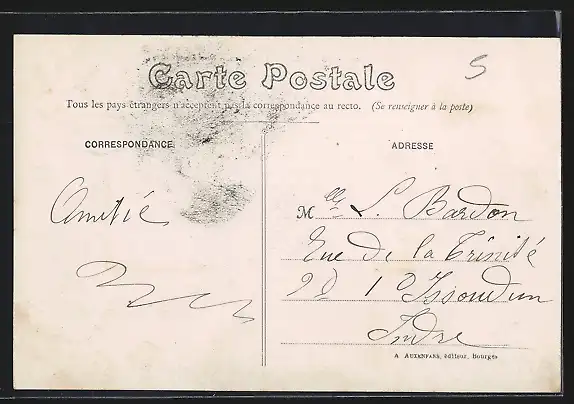 Carte Postale
5
Tous les pays étrangers n'acceptent pas la correspondance au recto. (Se renseigner à la poste)
CORRESPONDANCE
Amitié
ADRESSE
Mlle L. Bardon
Rue de la Trinité
10 Issoudun
Indre
A. AUXENFANS, éditeur, Bourges